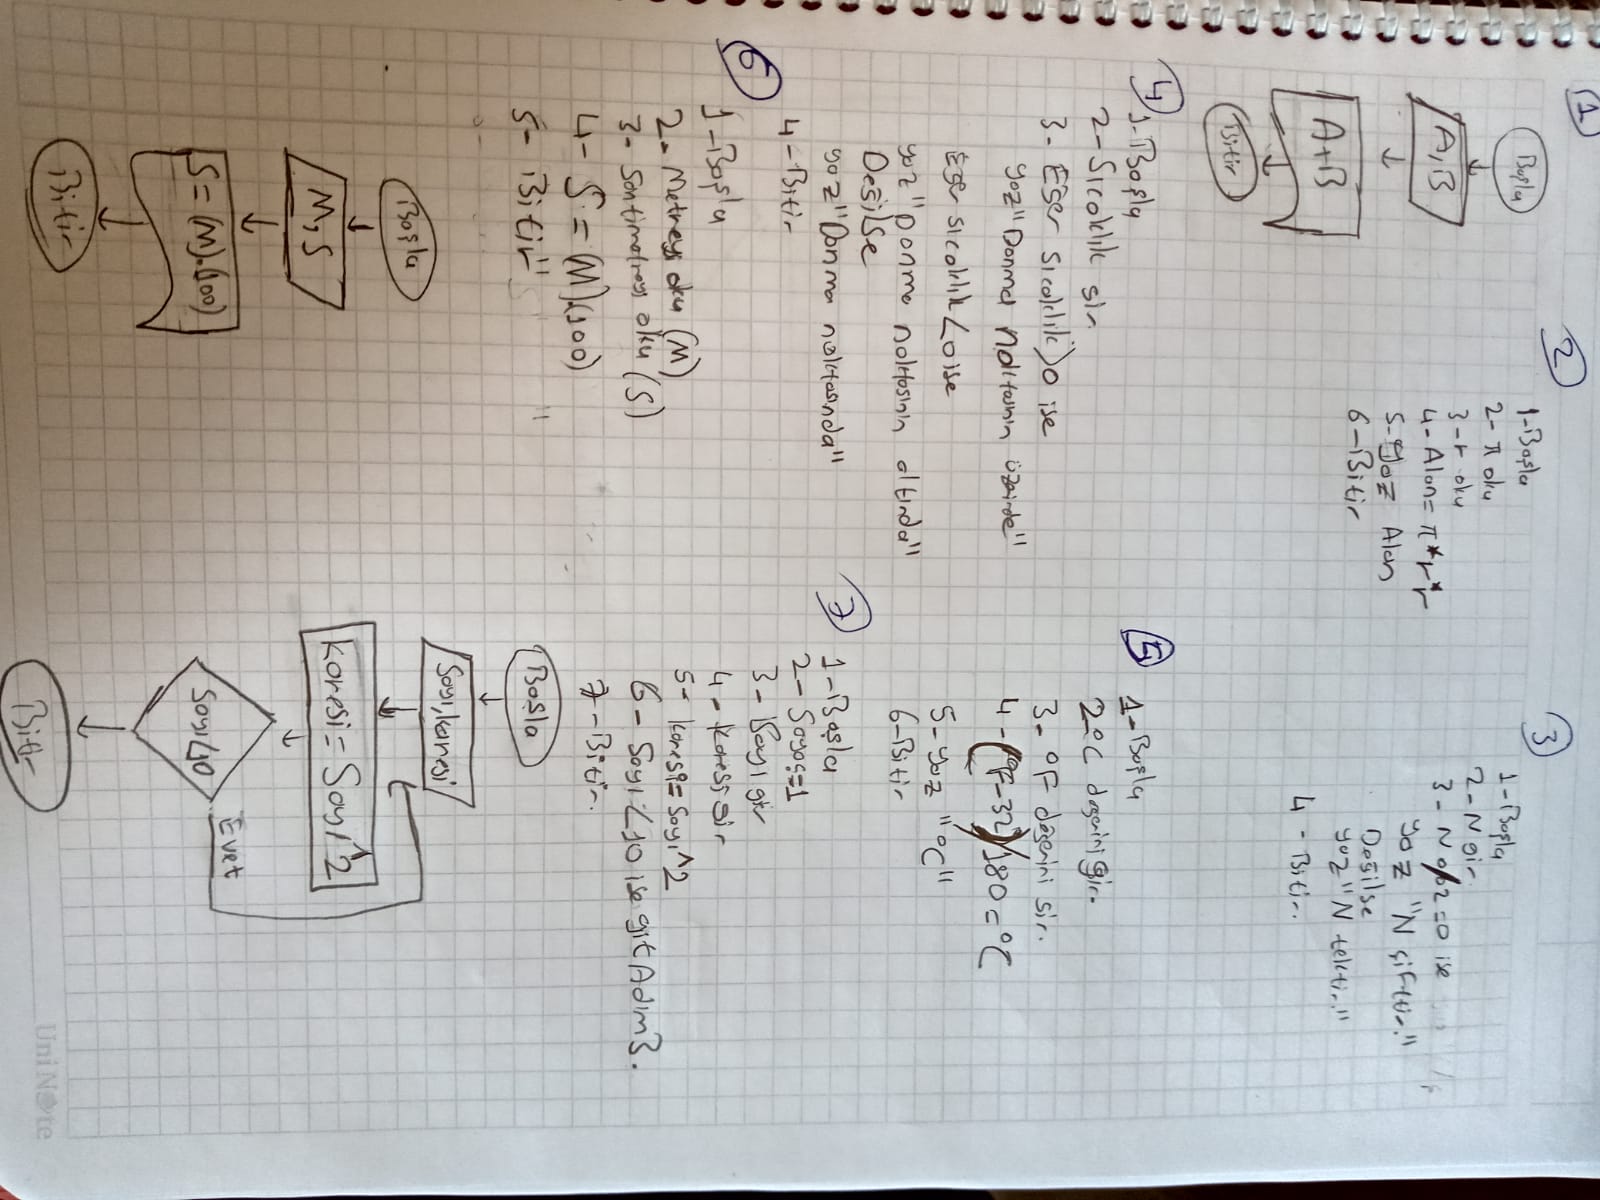 1
Başla
A,B
A+B
Bitir
2
1-Başla
2-π oku
3-r oku
4-Alan=π*r*r
5-yaz Alan
6-Bitir
3
1-Başla
2-N gir.
3-N%2=0 ise
yaz "N çifttir."
Değilse
yaz "N tektir."
4-Bitir.
4
1-Başla
2-Sıcaklık gir
3-Eğer sıcaklık>0 ise
yaz "Donma noktasının üzerinde"
Eğer sıcaklık<0 ise
yaz "Donma noktasının altında"
Değilse
yaz "Donma noktasında"
4-Bitir
5
1-Başla
2-°C değerini gir.
3-°F değerini gir.
4-(°F-32)/180=°C
5-yaz "°C"
6-Bitir
6
1-Başla
2-Metreyi oku (M)
3-Santimetreyi oku (S)
4-S=(M).(100)
5-Bitir
Başla
M,S
S=(M).(100)
Bitir
7
1-Başla
2-Sayaç=1
3-Sayı gir
4-karesi gir
5-karesi=Sayı^2
6-Sayı<10 ise git Adım3.
7-Bitir.
Başla
Sayı,karesi
karesi=Sayı^2
Sayı<10
Evet
Bitir
UniNote